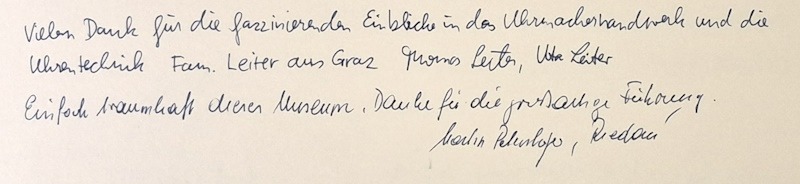 Vielen Dank für die faszinierenden Einblicke in das Uhrmacherhandwerk und die
Uhrentechnik Fam. Leiter aus Graz Thomas Leiter, Leiter
Einfach traumhaft dieses Museum. Danke für die großartige Führung.
Martin